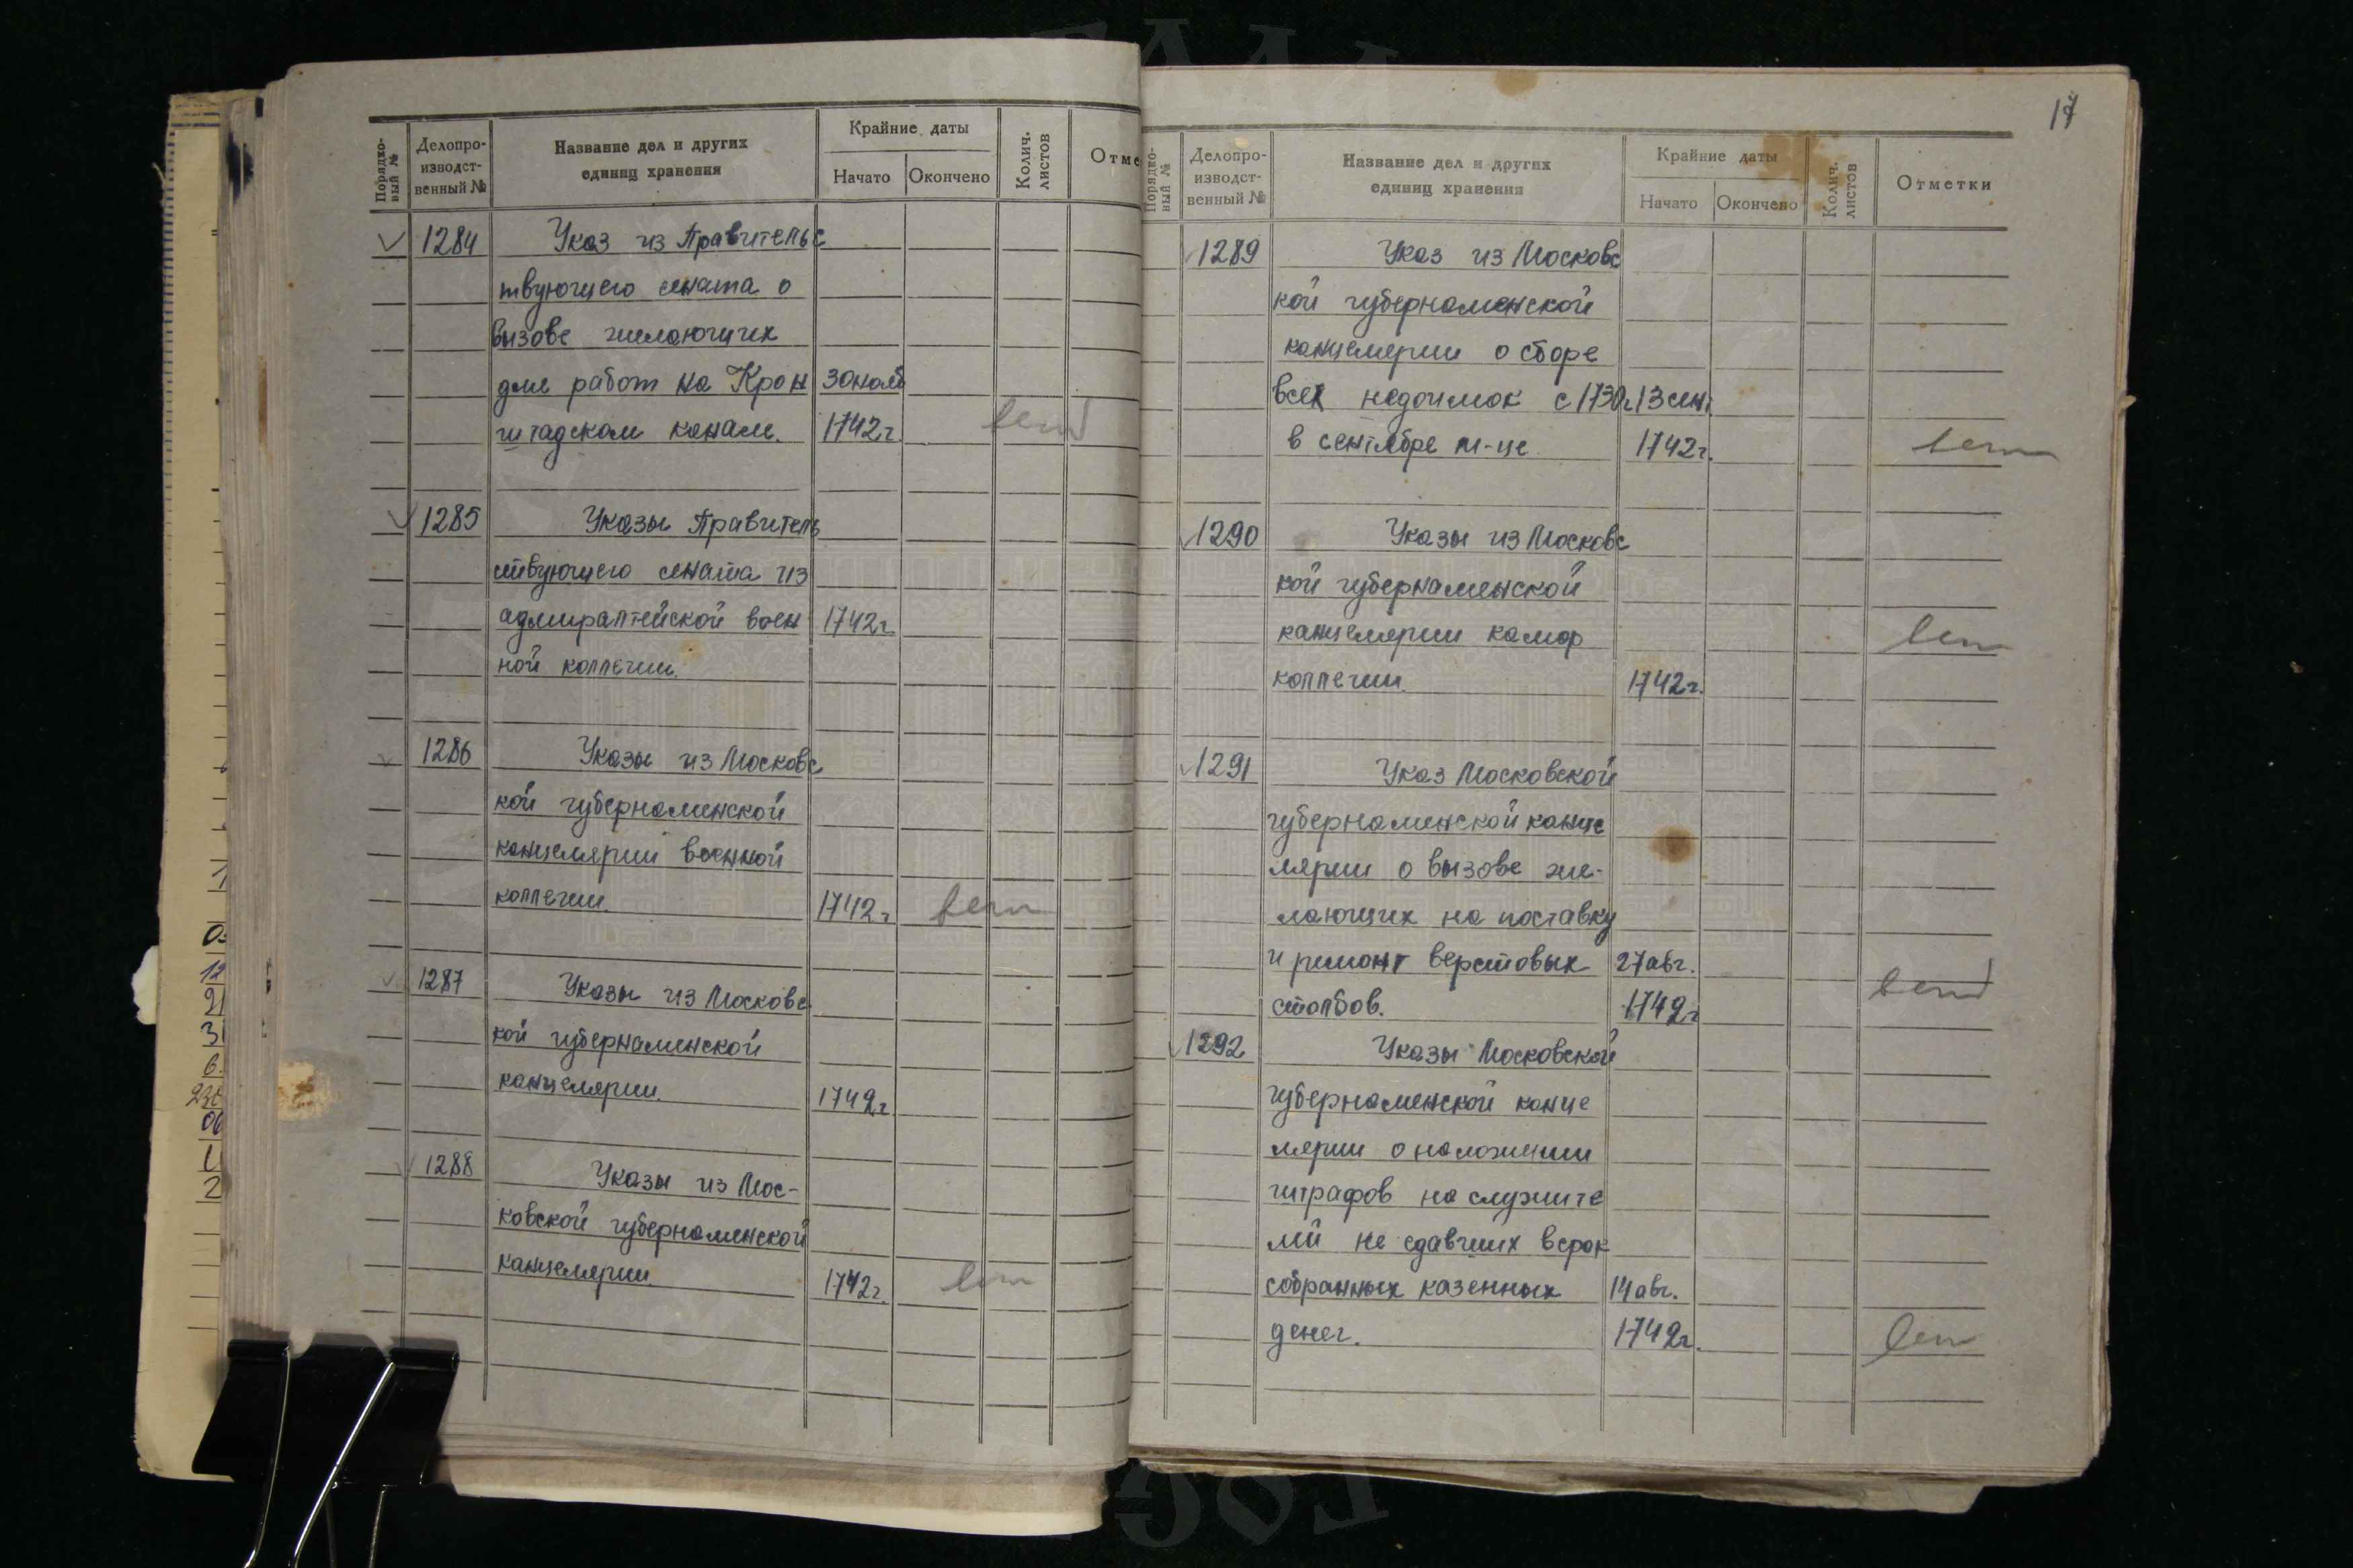 Порядко-
вый №
Делопро-
изводст-
венный №
Название дел и других
единиц хранения
Крайние даты
Начато
Окончено
Колич.
листов
Отме
1284 Указ из Правительс
твующего сената о
вызове желающих
для работ на Крон 30 нояб
штадском канале. 1742г. есть
1285 Указы Правитель
ствующего сената из
адмиралтейской воен 1742г.
ной коллегии.
1286 Указы из Московс
кой губернаменской
канцелярии военной
коллегии. 1742г есть
1287 Указы из Московс
кой губернаменской
канцелярии. 1742г
1288 Указы из Мос-
ковской губернаменской
канцелярии. 1742г. есть
17
Порядко-
вый №
Делопро-
изводст-
венный №
Название дел и других
единиц хранения
Крайние даты
Начато
Окончено
Колич.
листов
Отметки
1289 Указ из Московс
кой губернаменской
канцелярии о сборе
всех недоимок с 1730г. 13 сент
в сентябре м-це 1742г. есть
1290 Указы из Московс
кой губернаменской
канцелярии камор
есть
коллегии. 1742г.
1291 Указ Московской
губернаменской канце
лярии о вызове же-
лающих на поставку
и ремонт верстовых 27 авг.
столбов. 1742г есть
1292 Указы Московской
губернаменской канце
лярии о наложении
штрафов на служите
лей не сдавших в срок
собранных казенных 14 авг.
денег. 1742г. есть